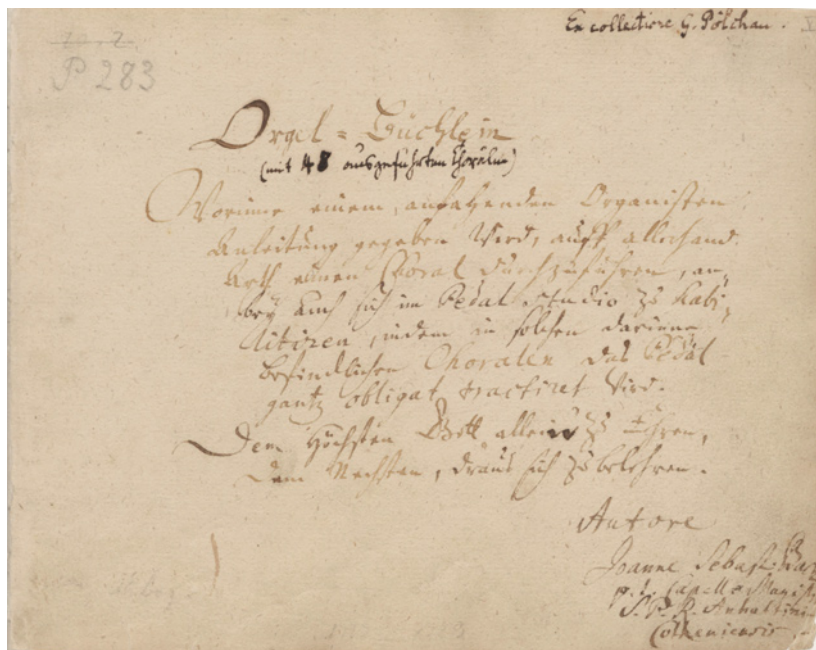 Ex collectione G. Pölchau.
P 283
Orgel=Büchlein
(mit 48 ausgeführten Chorälen)
Worinne einem anfahenden Organisten
Anleitung gegeben wird, auff allerhand
Arth einen Choral durchzuführen, an-
bey auch sich im Pedal studio zu habi-
litiren, indem in solchen darinne
befindlichen Choralen das Pedal
gantz obligat tractiret wird.
Dem Höchsten Gott allein zu Ehren,
Dem Nechsten, draus sich zu belehren.
Autore
Joanne Sebast. Bach
p. t. Capellæ Magist
S. P. R. Anhaltini-
Cotheniensis.